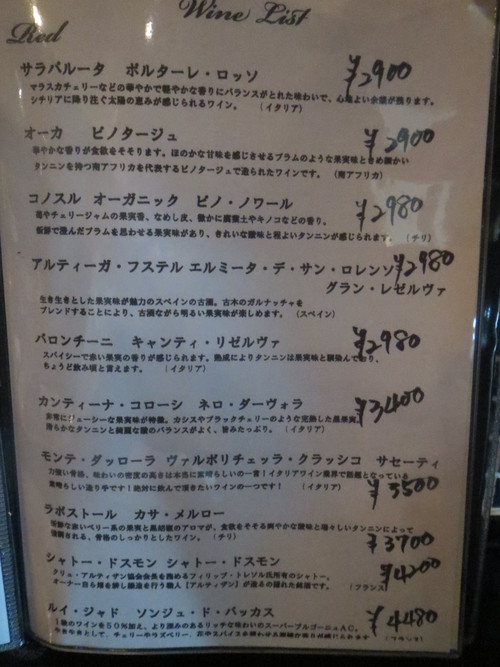 Wine List
Red
サラバルータ ポルターレ・ロッソ ¥2900
マラスカチェリーなどの華やかで軽やかな香りにバランスがとれた味わいで、心地よい余韻が残ります。
シチリアに降り注ぐ太陽の恵みが感じられるワイン。 (イタリア)
オーカ ピノタージュ ¥2900
華やかな香りが食欲をそそります。ほのかな甘味を感じさせるプラムのような果実味ときめ細かい
タンニンを持つ南アフリカを代表するピノタージュで造られたワインです。 (南アフリカ)
コノスル オーガニック ピノ・ノワール ¥2980
苺やチェリージャムの果実香、なめし皮、微かに腐葉土やキノコなどの香り。
新鮮で澄んだプラムを思わせる果実味があり、きれいな酸味と程よいタンニンが感じられます。 (チリ)
アルティーガ・フステル エルミータ・デ・サン・ロレンソ ¥2980
グラン・レゼルヴァ
生き生きとした果実味が魅力のスペインの古酒。古木のガルナッチャを
ブレンドすることにより、古酒ながら明るい果実味が楽しめます。 (スペイン)
バロンチーニ キャンティ・リゼルヴァ ¥2980
スパイシーで赤い果実の香りが感じられます。熟成によりタンニンは果実味と馴染んでおり、
ちょうど飲み頃と言えます。 (イタリア)
カンティーナ・コローシ ネロ・ダーヴォラ ¥3400
非常にジューシーな果実味が特徴。カシスやブラックチェリーのような完熟した黒果実。
滑らかなタンニンと綺麗な酸のバランスがよく、旨みたっぷり。 (イタリア)
モンテ・ダッローラ ヴァルポリチェッラ・クラッシコ サセーティ
力強い骨格、味わいの密度の高さは本当に素晴らしいの一言!イタリアワイン業界で話題となっている
素晴らしい造り手です!絶対に飲んで頂きたいワインの一つです! (イタリア) ¥3500
ラポストール カサ・メルロー
新鮮な赤いベリー系の果実と黒胡椒のアロマが、食欲をそそる爽やかな酸味と瑞々しいタンニンによって
される、骨格のしっかりとしたワイン。 (チリ) ¥3700
シャトー・ドスモン シャトー・ドスモン ¥4200
クリュ・アルティザン協会会長を務めるフィリップ・トレゾル氏所有のシャトー。
オーナー自ら畑を耕し醸造を行う職人【アルティザン】が造るの隠れた銘酒です。 (フランス)
ルイ・ジャド ソンジュ・ド・バッカス ¥4480
1級のワインを50%加え、より深みのあるリッチな味わいのスーパーブルゴーニュAC。
として、チェリーやラズベリー、 やスパイスを (フランス)